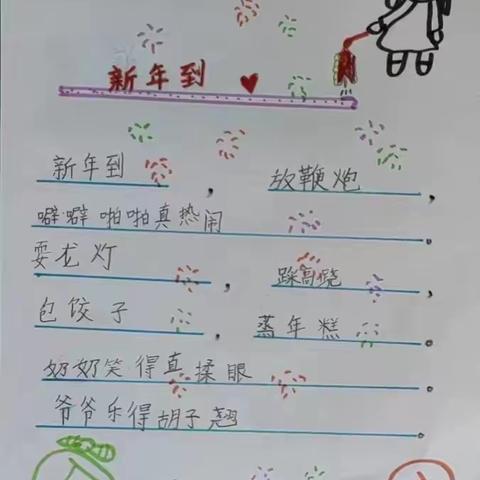 新年到
新年到，放鞭炮，
噼噼啪啪真热闹。
耍龙灯，踩高跷，
包饺子，蒸年糕。
奶奶笑得直揉眼，
爷爷乐得胡子翘。